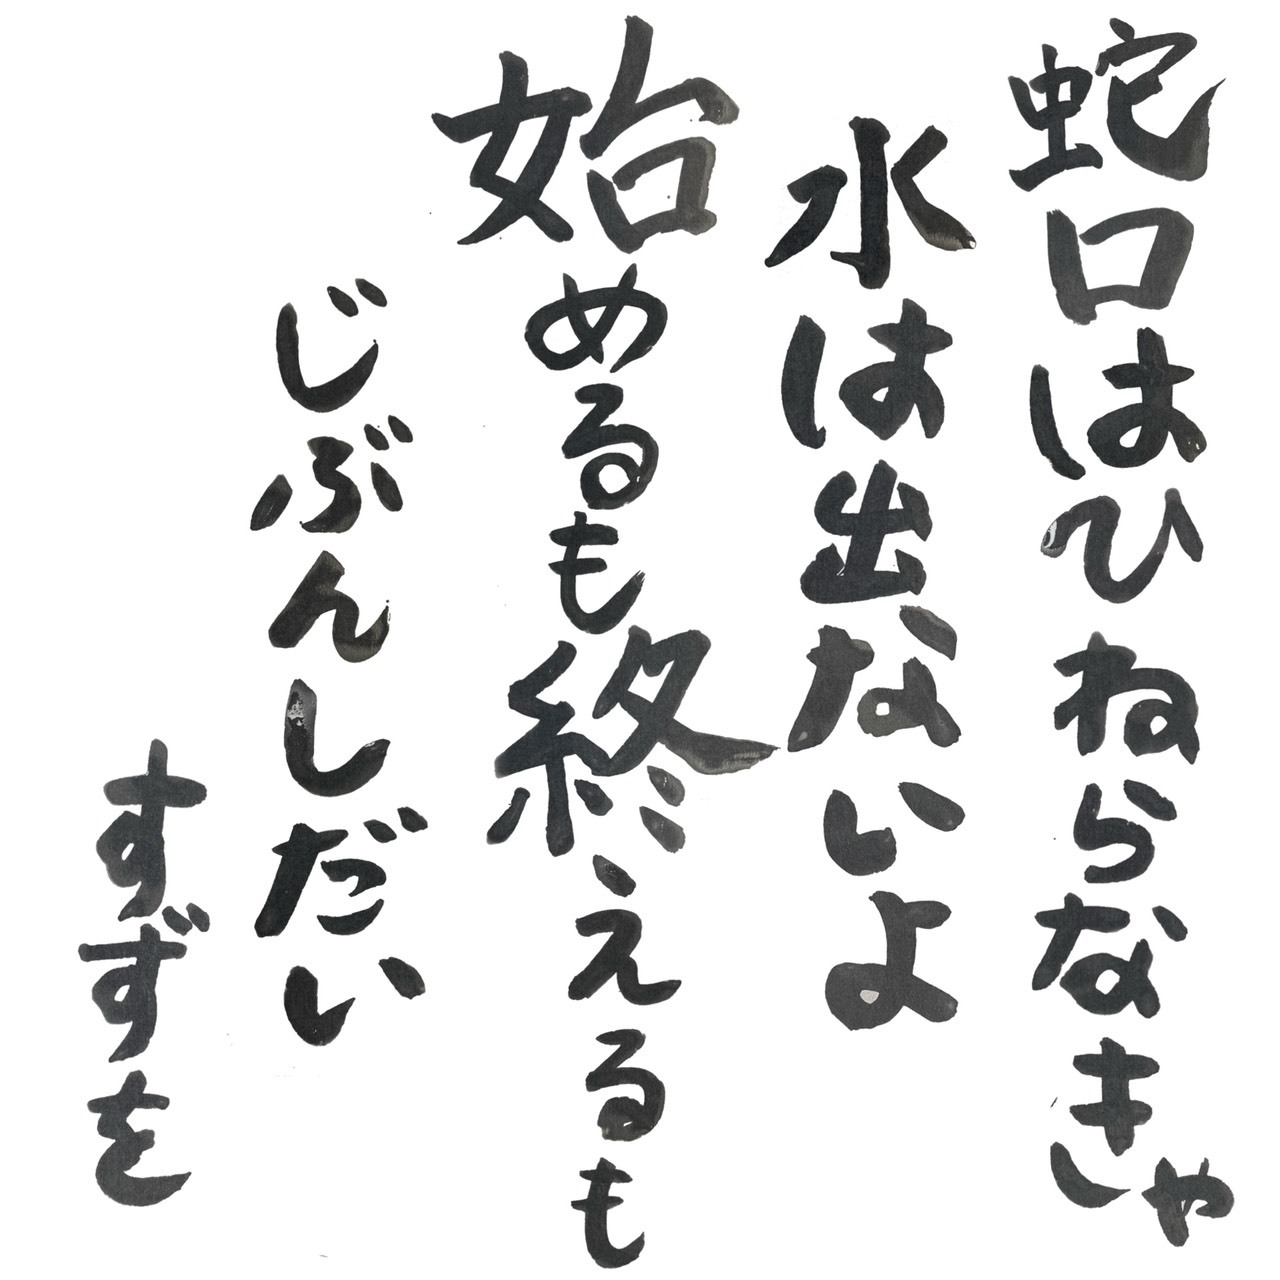 蛇口はひねらなきゃ
水は出ないよ
始めるも終えるも
じぶんしだい
すずを